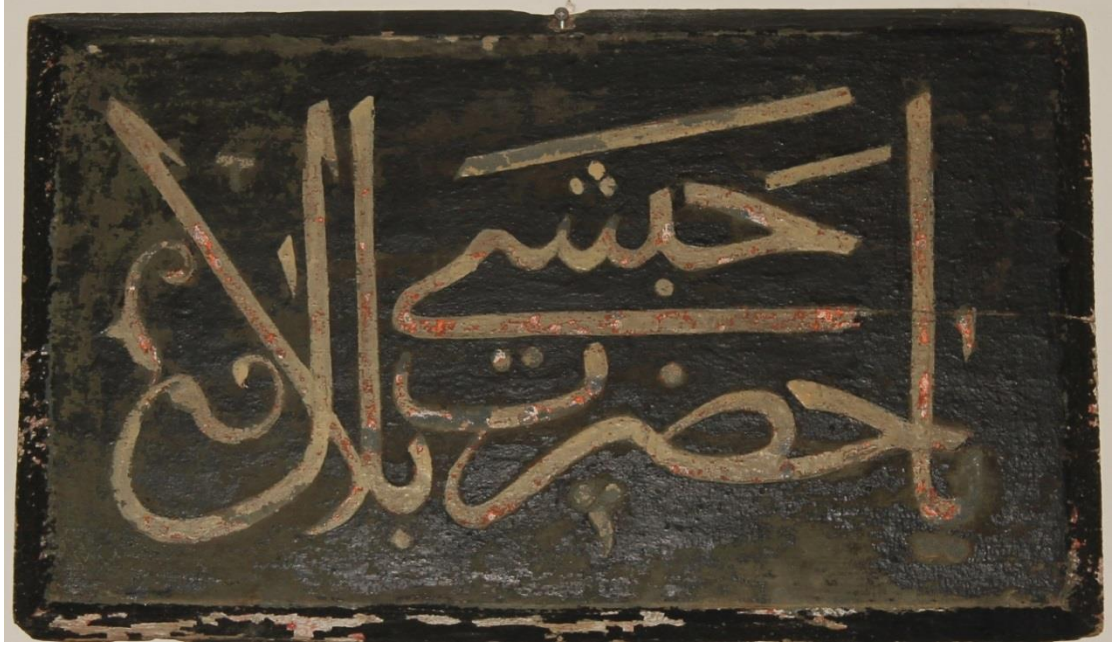 يا حضرت بلال
حبشي